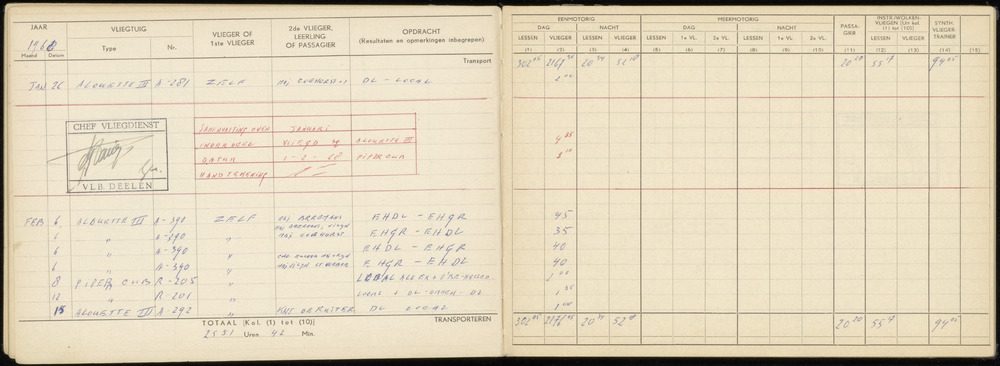 JAAR
1968
Maand Datum
VLIEGTUIG
Type Nr.
VLIEGER OF
1ste VLIEGER
2de VLIEGER,
LEERLING
OF PASSAGIER
OPDRACHT
(Resultaten en opmerkingen inbegrepen)
Transport
JAN 26 ALOUETTE III A-281 ZELF DL - LOCAL
CHEF VLIEGDIENST
VLB. DEELEN
SAMENVATTING OVER JANUARI
VLIEGD OP ALOUETTE III
DATUM 1-2-68 PIPER CUB
HANDTEKENING
FEB 6 ALOUETTE III A-390 ZELF EHDL - EHGR
6 " A-390 " EHGR - EHDL
6 " A-390 " EHDL - EHGR
6 " A-390 " EHGR - EHDL
8 PIPER CUB R-205 " LOCAL
12 " R-201 " LOCAL + DL
15 ALOUETTE III A-292 " DE RUITER DL LOCAL
TOTAAL [Kol. (1) tot (10)]
2531 Uren 42 Min.
TRANSPORTEREN
EENMOTORIG
DAG NACHT
LESSEN VLIEGER LESSEN VLIEGER
(1) (2) (3) (4)
MEERMOTORIG
DAG NACHT
LESSEN 1e VL. 2e VL. LESSEN 1e VL. 2e VL.
(5) (6) (7) (8) (9) (10)
PASSA-
GIER
(11)
INSTR./WOLKEN-
VLIEGEN [Uit kol.
(1) tot (10)]
LESSEN VLIEGER
(12) (13)
SYNTH.
VLIEGER
TRAINER
(14) (15)
302 05 20 34 52 18 20 20 55 17 94 05
2 00
4 35
45
35
40
40
2 00
1 35
1 00
302 05 2176 05 20 34 52 18 20 20 55 17 94 05